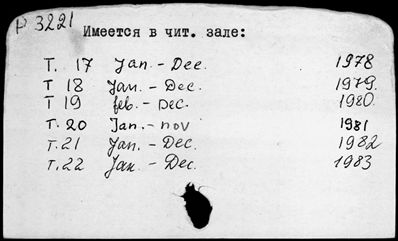 P 3221
Имеется в чит. зале:
Т. 17 Jan. - Dec. 1978
Т 18 Jan. - Dec. 1979.
Т 19 feb. - Dec. 1980.
Т. 20 Jan. - nov 1981
Т. 21 Jan. - Dec. 1982
Т. 22 Jan - Dec. 1983